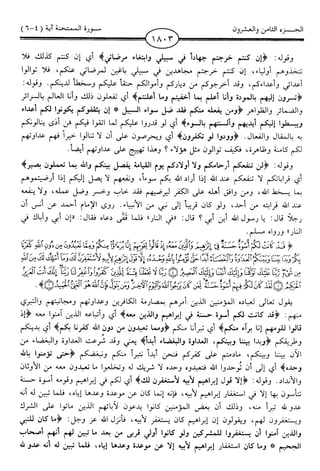 الجزء الثامن والعشرون
سورة الممتحنة آية (٤-٦)
١٨٠٣
وقوله: ﴿إن كنتم خرجتم جهاداً في سبيلي وابتغاء مرضاتي﴾ أي إن كنتم كذلك فلا
تتخذوهم أولياء، إن كنتم خرجتم مجاهدين في سبيلي باغين لمرضاتي عنكم، فلا توالوا
أعدائي وأعداءكم، وقد أخرجوكم من دياركم وأموالكم حنقاً عليكم وسخطاً لدينكم. وقوله:
﴿تسرون إليهم بالمودة وأنا أعلم بما أخفيتم وما أعلنتم﴾ أي تفعلون ذلك وأنا العالم بالسرائر
والضمائر والظواهر ﴿ومن يفعله منكم فقد ضل سواء السبيل * إن يثقفوكم يكونوا لكم أعداء
ويبسطوا إليكم أيديهم وألسنتهم بالسوء﴾ أي لو قدروا عليكم لما اتقوا فيكم من أذى ينالونكم
به بالمقال والفعال. ﴿وودوا لو تكفرون﴾ أي ويحرصون على أن لا تنالوا خيراً فهم عداوتهم
لكم كامنة وظاهرة، فكيف توالون مثل هؤلاء؟ وهذا تهييج على عداوتهم أيضاً.
وقوله: ﴿لن تنفعكم أرحامكم ولا أولادكم يوم القيامة يفصل بينكم والله بما تعملون بصير﴾
أي قراباتكم لا تنفعكم عند الله إذا أراد الله بكم سوءاً، ونفعهم لا يصل إليكم إذا أرضيتموهم
بما يسخط الله، ومن وافق أهله على الكفر ليرضيهم فقد خاب وخسر وضل عمله، ولا ينفعه
عند الله قرابته من أحد، ولو كان قريباً إلى نبي من الأنبياء. روى الإمام أحمد عن أنس أن
رجلاً قال: يا رسول الله أين أبي؟ قال: «في النار» فلما قفّى دعاه فقال: «إن أبي وأباك في
النار» ورواه مسلم.
يقول تعالى لعباده المؤمنين الذين أمرهم بمصارمة الكافرين وعداوتهم ومجانبتهم والتبري
منهم: ﴿قد كانت لكم أسوة حسنة في إبراهيم والذين معه﴾ أي وأتباعه الذين آمنوا معه ﴿إذ
قالوا لقومهم إنا برآء منكم﴾ أي تبرأنا منكم ﴿ومما تعبدون من دون الله كفرنا بكم﴾ أي بدينكم
وطريقكم ﴿وبدا بيننا وبينكم، العداوة والبغضاء أبداً﴾ يعني وقد شُرعت العداوة والبغضاء من
الآن بيننا وبينكم، مادمتم على كفركم فنحن أبداً نتبرأ منكم ونبغضكم ﴿حتى تؤمنوا بالله
وحده﴾ أي إلى أن تُوحدوا الله فتعبدوه وحده لا شريك له وتخلعوا ما تعبدون معه من الأوثان
والأنداد. وقوله: ﴿إلا قول إبراهيم لأبيه لأستغفرن لك﴾ أي لكم في إبراهيم وقومه أسوة حسنة
تتأسون بها إلا في استغفار إبراهيم لأبيه، فإنه إنما كان عن موعدة وعدها إياه، فلما تبين له أنه
عدو لله تبرأ منه، وذلك أن بعض المؤمنين كانوا يدعون لآبائهم الذين ماتوا على الشرك
ويستغفرون لهم، ويقولون إن إبراهيم كان يستغفر لأبيه، فأنزل الله عز وجل: ﴿ما كان للنبي
والذين آمنوا أن يستغفروا للمشركين ولو كانوا أولي قربى من بعد ما تبين لهم أنهم أصحاب
الجحيم * وما كان استغفار إبراهيم لأبيه إلا عن موعدة وعدها إياه، فلما تبين له أنه عدو لله